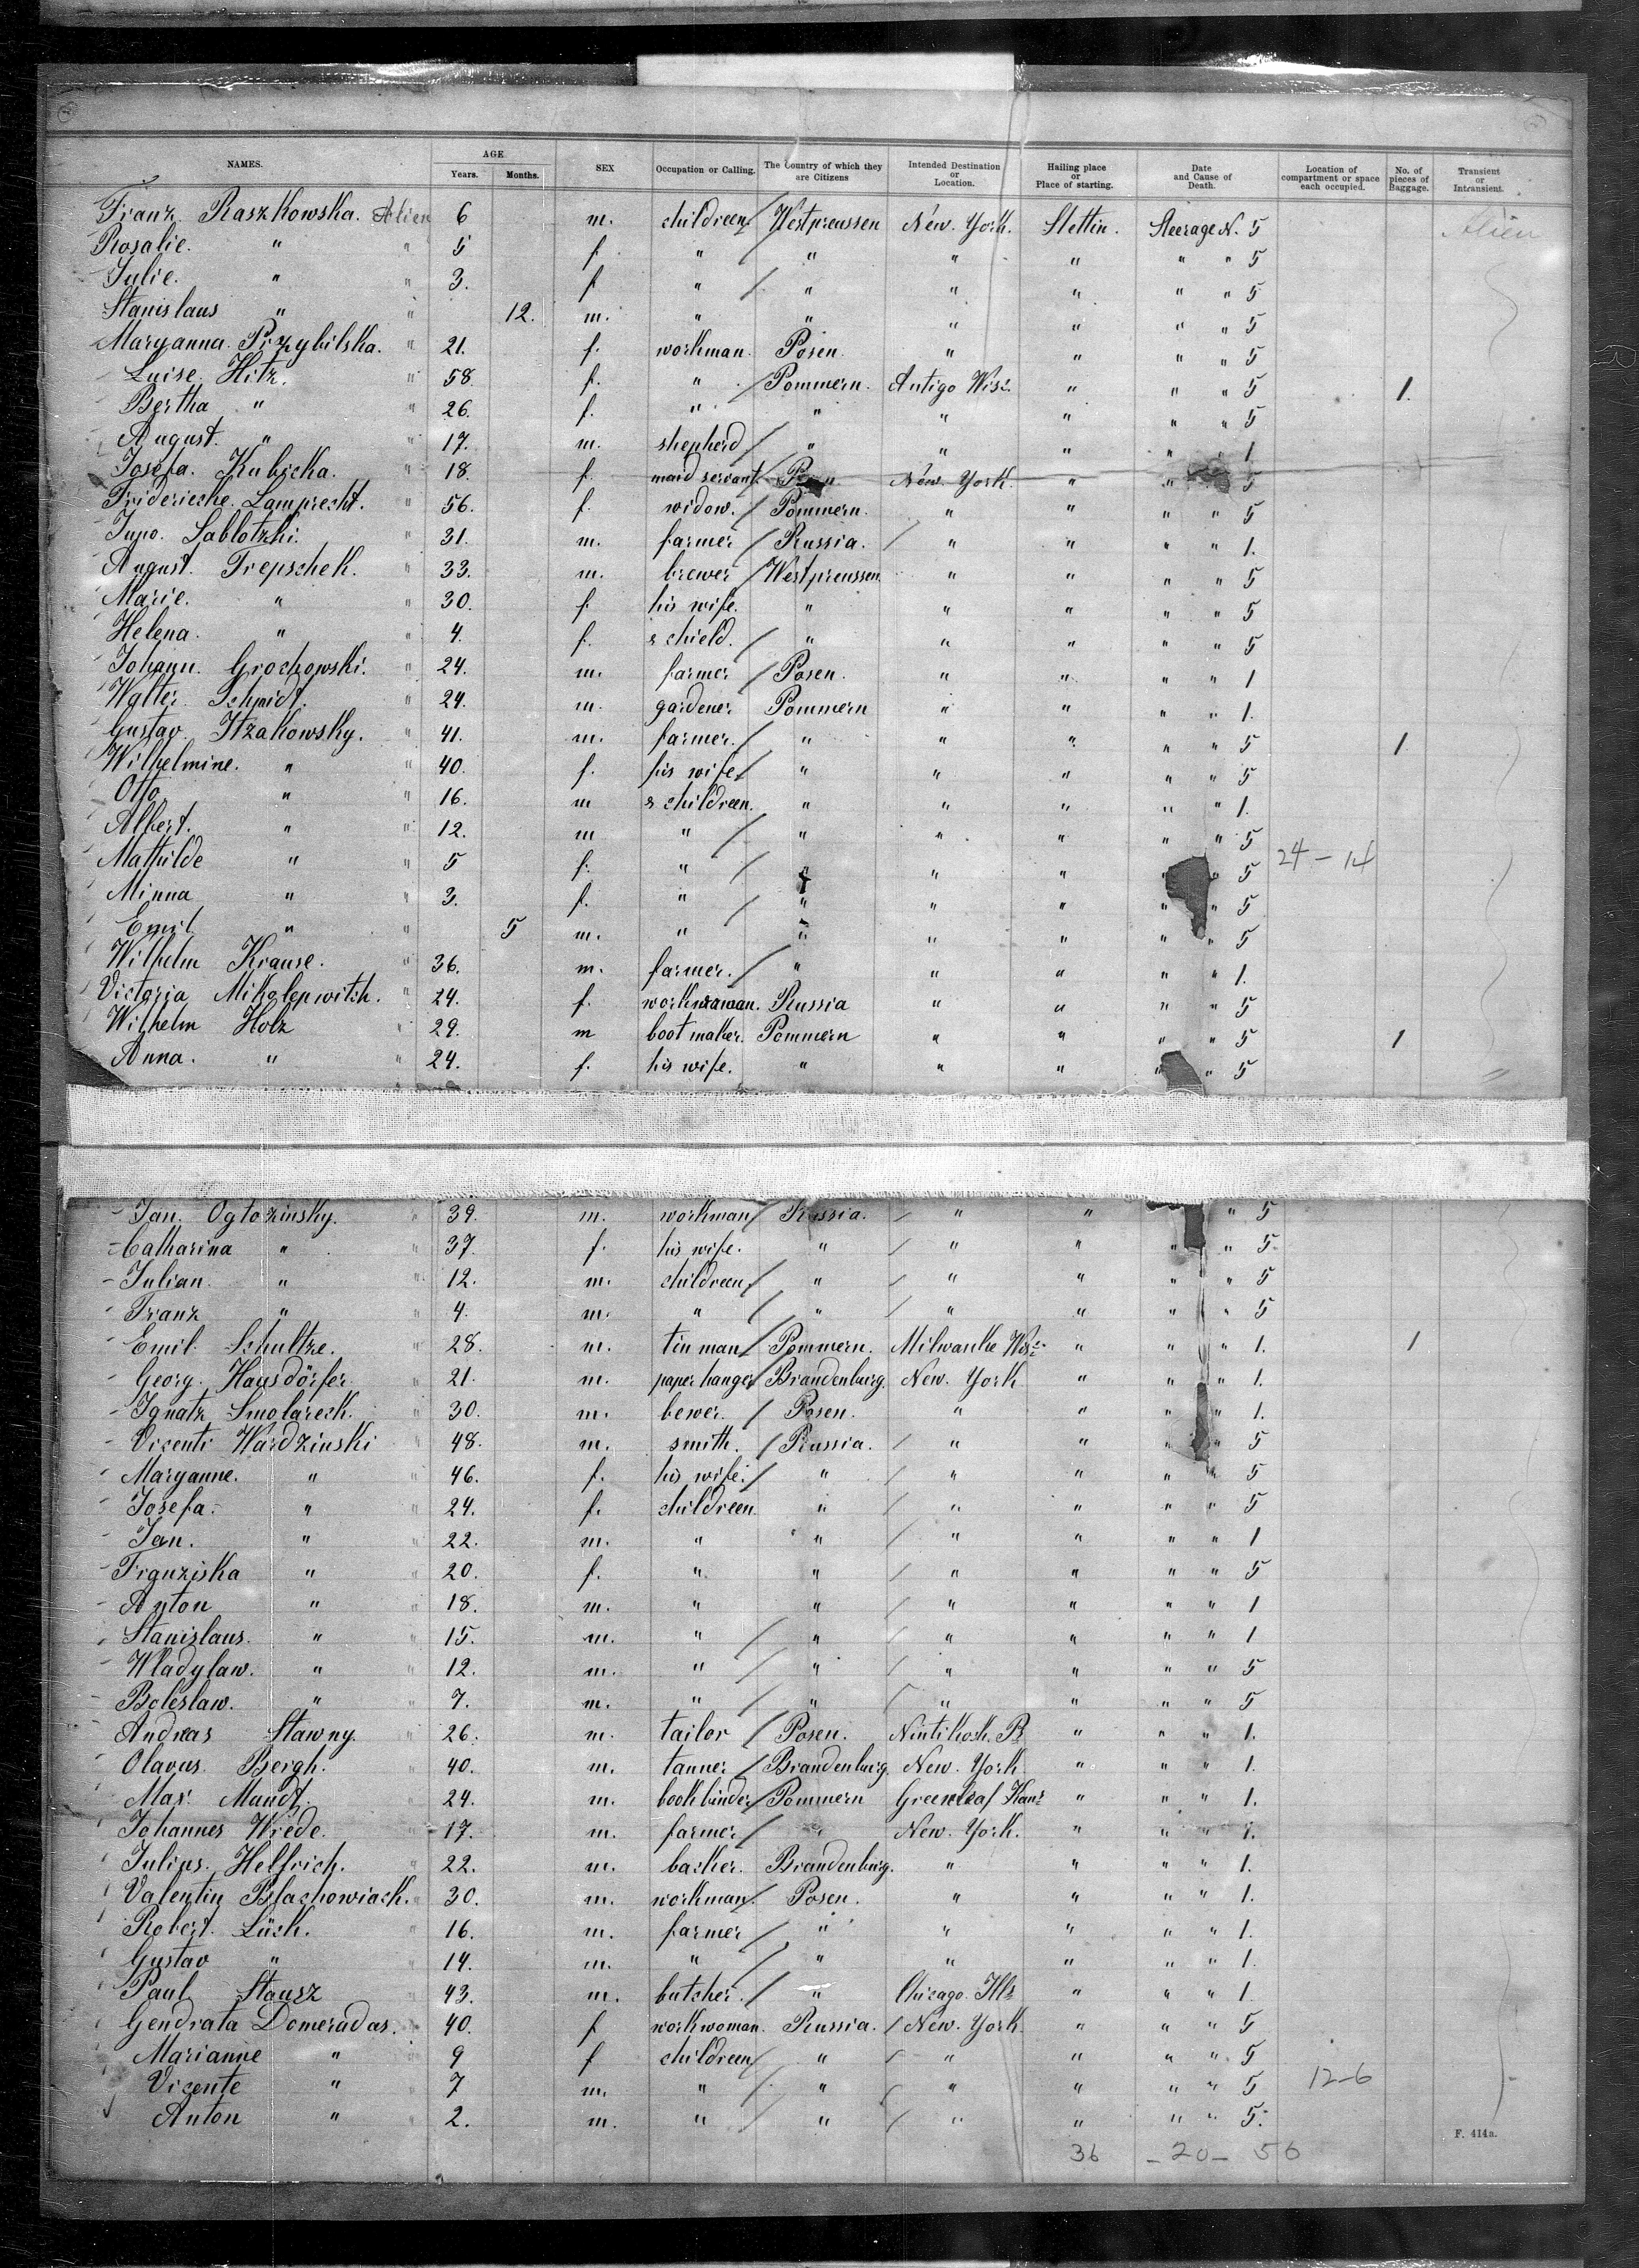 NAMES. AGE Years. Months. SEX Occupation or Calling. The Country of which they are Citizens Intended Destination or Location. Hailing place or Place of starting. Date and Cause of Death. Location of compartment or space each occupied. No. of pieces of Baggage. Transient or Intransient.
Franz Raszkowska. Alien 6 m. childreen Westpreussen New. York. Stettin. Steerage N. 5 Alien
Rosalie. " " 5 f. " " " " " " 5
Julie. " " 3. f " " " " " " 5
Stanislaus " " 12. m. " " " " " " 5
Maryanna Przybilska. " 21. f. workman Posen. " " " " 5
Luise Hitz. " 58. f. " Pommern. Antigo Wisc. " " " 5 1.
Bertha " " 26. f. " " " " " " 5
August. " " 17. m. shepherd " " " " " 1
Josefa. Kubicka. " 18. f. maid servant New. York. " " 5
Friderieche Lamprecht. " 56. f. widow. Pommern. " " " " 5
Jupo. Sablotzki. " 31. m. farmer Russia. " " " " 1.
August. Trepschek. " 33. m. brewer Westpreussen " " " " 5
Marie. " " 30. f. his wife. " " " " " 5
Helena. " " 4. f. & chield. " " " " " 5
Johann. Grochowski. " 24. m. farmer Posen. " " " " 1
Walter. Schmidt. " 24. m. gardener Pommern " " " " 1.
Gustav. Itzakowsky. " 41. m. farmer. " " " " " 5 1.
Wilhelmine. " " 40. f. his wife " " " " " 5
Otto " " 16. m & childreen. " " " " " 1.
Albert. " " 12. m " " " " " " 5
Mathilde " " 5 f. " " " " 5 24-14
Minna " " 3. f. " " " " " " 5
Emil " " 5 m. " " " " " " 5
Wilhelm Krause. " 36. m. farmer. " " " " " 1.
Victoria Mikolepwitch. " 24. f. workwaman. Russia " " " " 5
Wilhelm Holz " 29. m boot maker. Pommern " " " " 5 1
Anna. " " 24. f. his wife. " " " " " 5
Jan. Oglozinsky. " 39. m. workman Russia. " " " 5
Catharina " " 37. f. his wife. " " " " " 5.
Julian. " " 12. m. childreen. " " " " " 5
Franz " " 4. m. " " " " " " 5
Emil. Schultze. " 28. m. tin man Pommern. Milwauke Wisc. " " " 1. 1
Georg. Hausdörfer " 21. m. paper hanger Brandenburg. New. York " " " 1.
Ignatz Smolareck. " 30. m. bewer. Posen. " " " " 1.
Vicenti Wardzinski " 48. m. smith. Russia. " " " " 5
Maryanne. " " 46. f. his wife. " " " " " 5
Josefa. " " 24. f. childreen " " " " " 5
Jan. " " 22. m. " " " " " " 1
Franziska " " 20. f. " " " " " " 5
Anton " " 18. m. " " " " " " 1
Stanislaus. " " 15. m. " " " " " " 1
Wladylaw. " " 12. m. " " " " " " 5
Boleslaw. " " 7. m. " " " " " " 5
Andreas Stawny. " 26. m. tailor Posen. " " " 1.
Olavus. Bergh. " 40. m. tanner Brandenburg. New. York " " " 1.
Max Mundt. " 24. m. bookbinder Pommern Greenleaf Kans " " " 1.
Johannes Wrede. " 17. m. farmer " New. York. " " " 1.
Julius. Helfrich. " 22. m. backer. Brandenburg. " " " " 1.
Valentin Blachowiack. " 30. m. workman. Posen. " " " " 1.
Robert. Lück. " 16. m. farmer " " " " " 1.
Gustav " " 14. m. " " " " " " 1.
Paul Stausz " 43. m. butcher. " Chicago Ills " " " 1.
Gendrata Domeradas. " 40. f workwoman. Russia. New. York. " " " 5
Marianne " " 9 f childreen " " " " " 5
Vicente " " 7 m. " " " " " " 5 12-6
Anton " " 2. m. " " " " " " 5.
F. 414a.
36 - 20 - 56